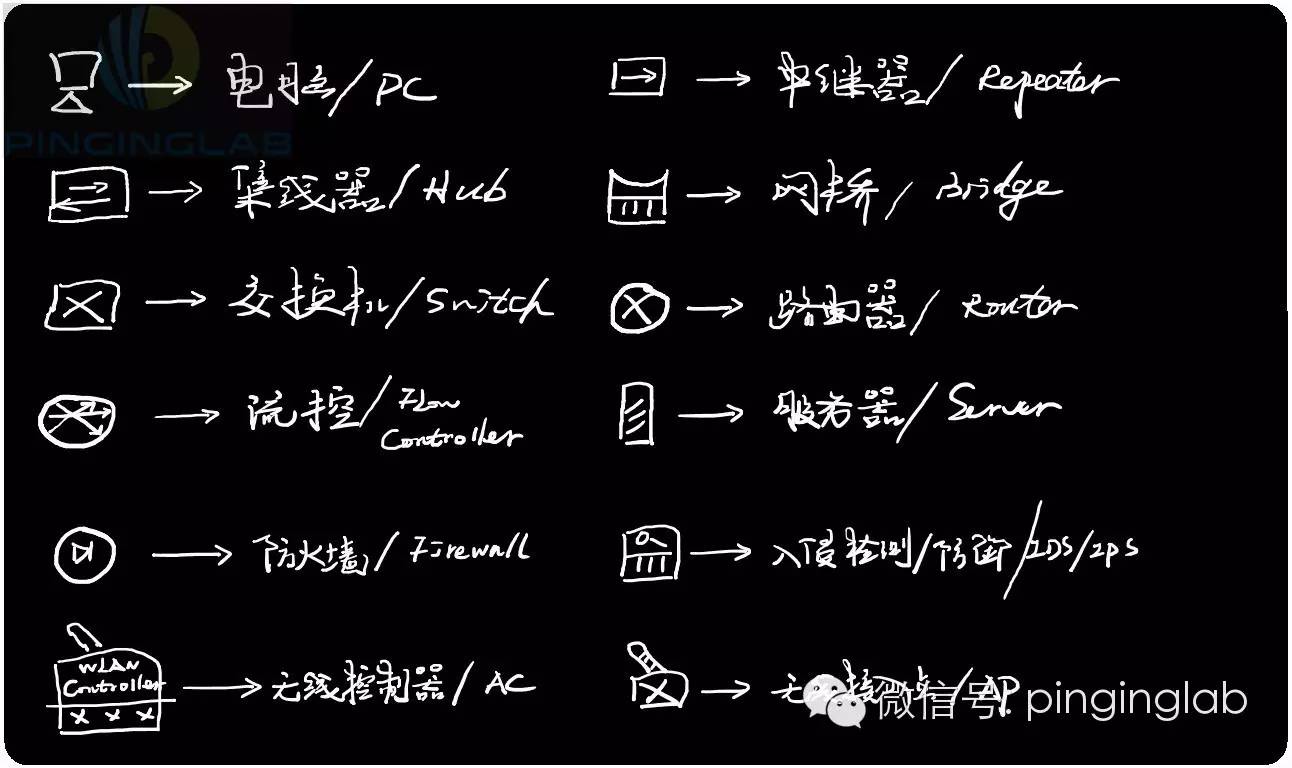 PINGINGLAB
电脑/PC
单继器/Repeater
集线器/Hub
网桥/Bridge
交换机/Switch
路由器/Router
流控/Flow Controller
服务器/Server
防火墙/Firewall
入侵检测/防御/IDS/IPS
WLAN Controller
无线控制器/AC
无线接入点/AP
微信号: pinginglab